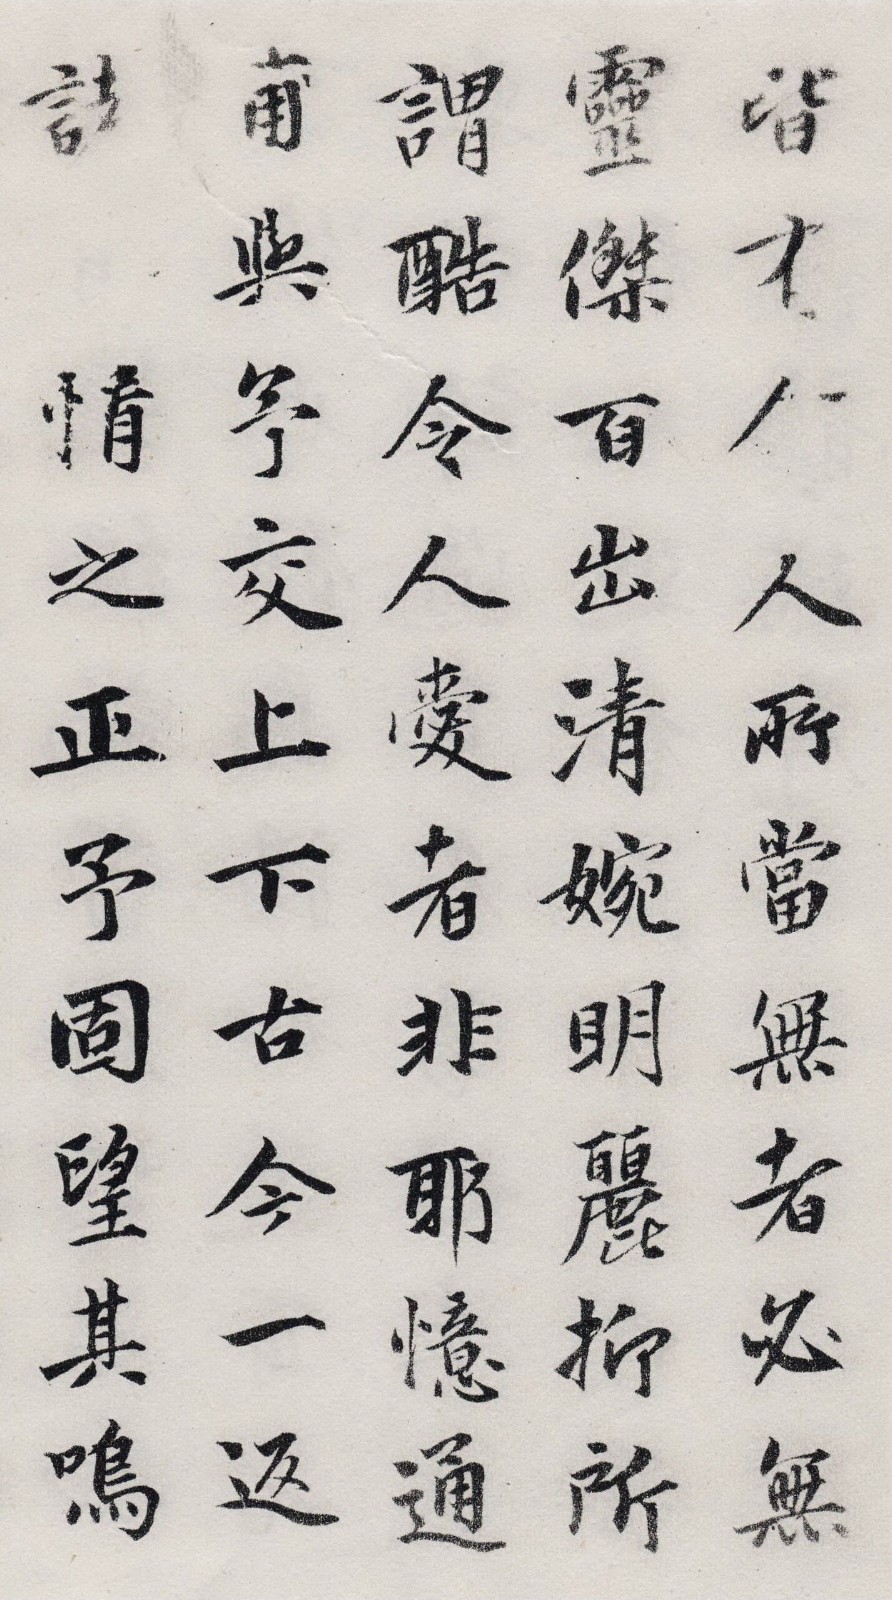 皆才人人所當無者必無
靈傑百出清婉明麗抑所
謂酷令人愛者非耶憶通
甫與予交上下古今一返
情之正予固望其鳴